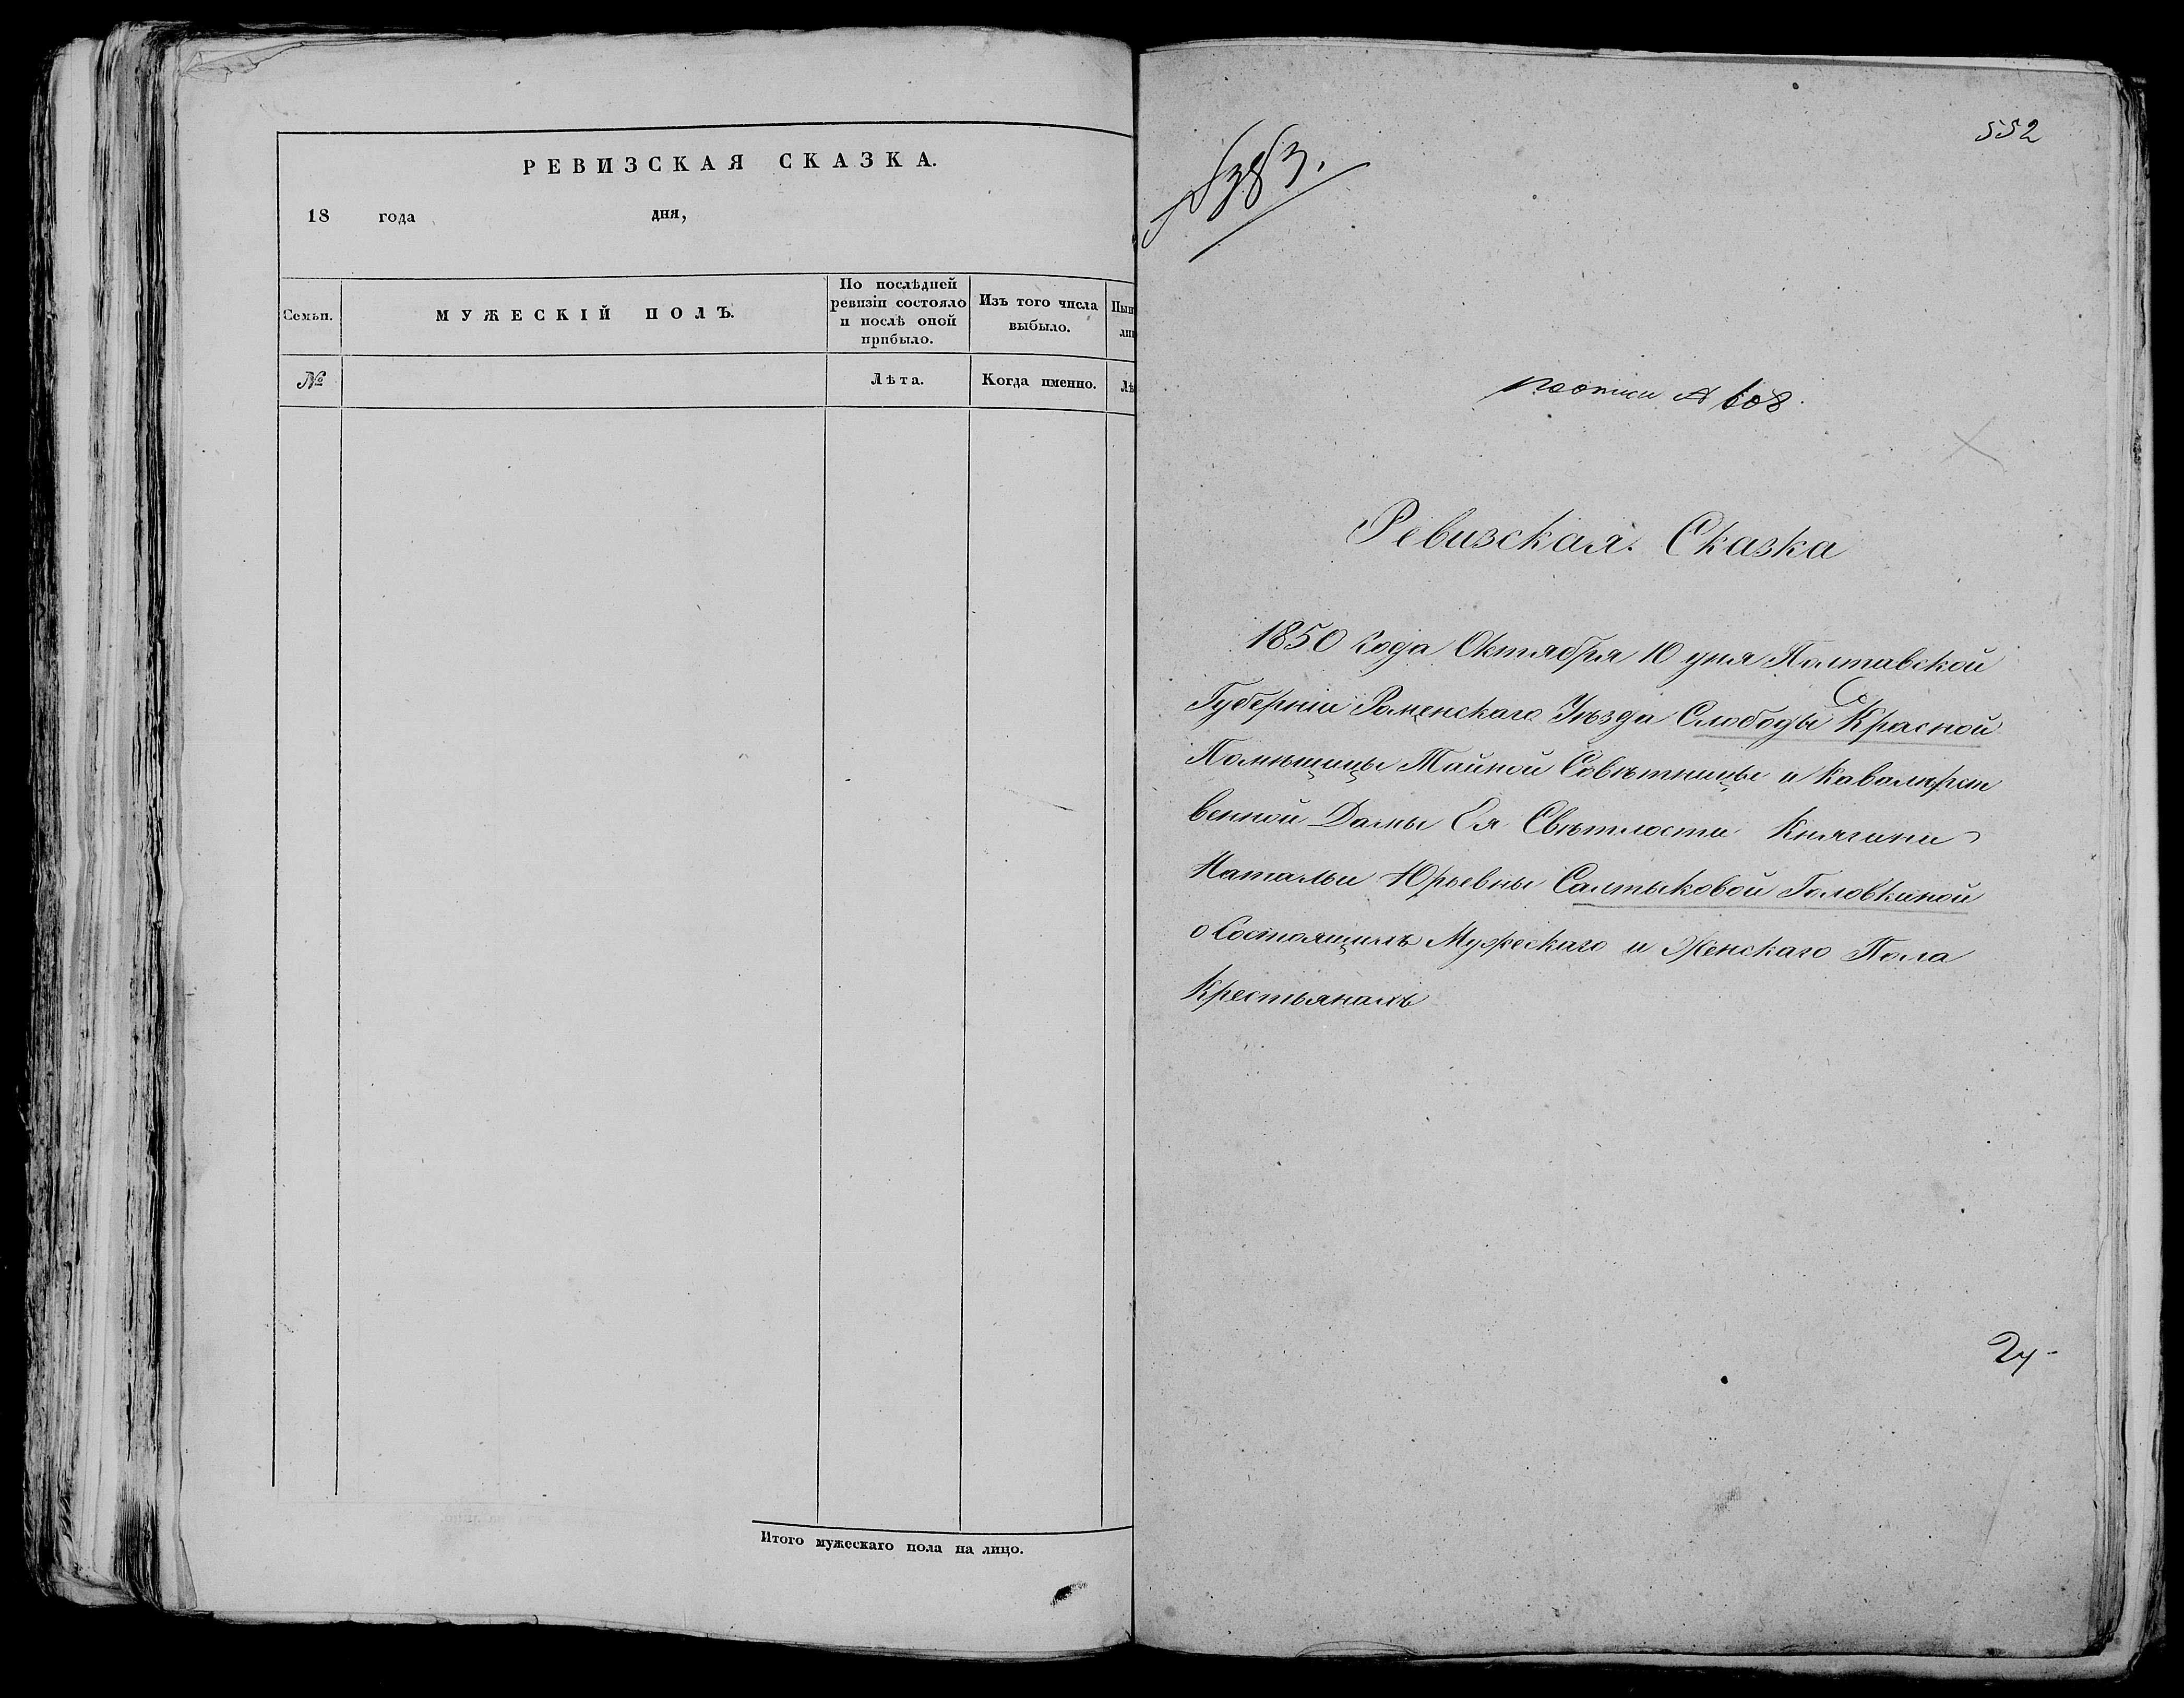 РЕВИЗСКАЯ СКАЗКА.
18 года дня,
Семьи.
МУЖЕСКІЙ ПОЛЪ.
По послѣдней
ревизіи состояло
и послѣ оной
прибыло.
Изъ того числа
выбыло.
Нын
ли
№
Лѣта.
Когда именно.
Лѣ
Итого мужескаго пола на лицо.
552
608.
Ревизская Сказка
1850 года Октября 10 дня Полтавской
Губерніи Роменскаго Уѣзда Слободы Красной
Помѣщицы Тайной Совѣтницы и Кавалерст
венной Дамы Ея Свѣтлости Княгини
Натальи Юрьевны Салтыковой Головкиной
о Состоящихъ Мужескаго и Женскаго Пола
Крестьянахъ